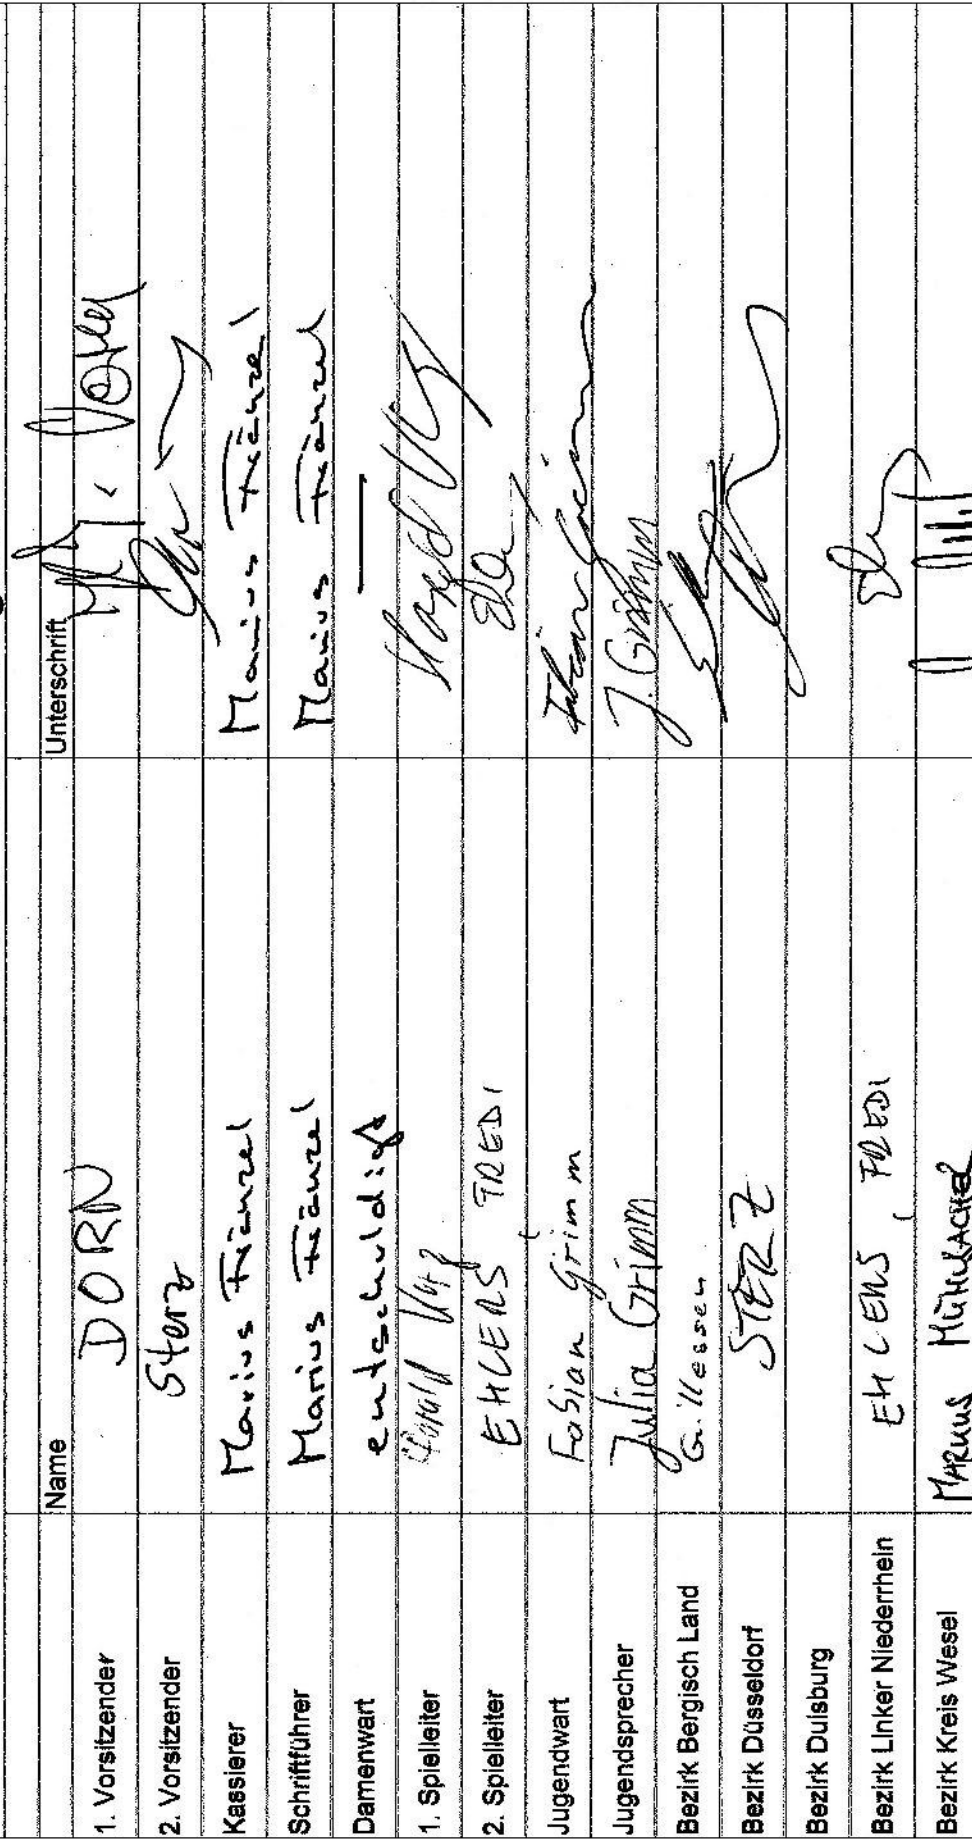 Name Unterschrift
1. Vorsitzender DORN
2. Vorsitzender Sterz
Kassierer Marius Fränzel Marius Fränzel
Schriftführer Marius Fränzel Marius Fränzel
Damenwart entschuldigt —
1. Spielleiter
2. Spielleiter EHLERS, FREDI
Jugendwart Fabian Grimm Fabian Grimm
Jugendsprecher Julia Grimm J. Grimm
Bezirk Bergisch Land Gillessen
Bezirk Düsseldorf STERZ
Bezirk Duisburg
Bezirk Linker Niederrhein EHLERS, FREDI
Bezirk Kreis Wesel MARKUS MÜHLACHER